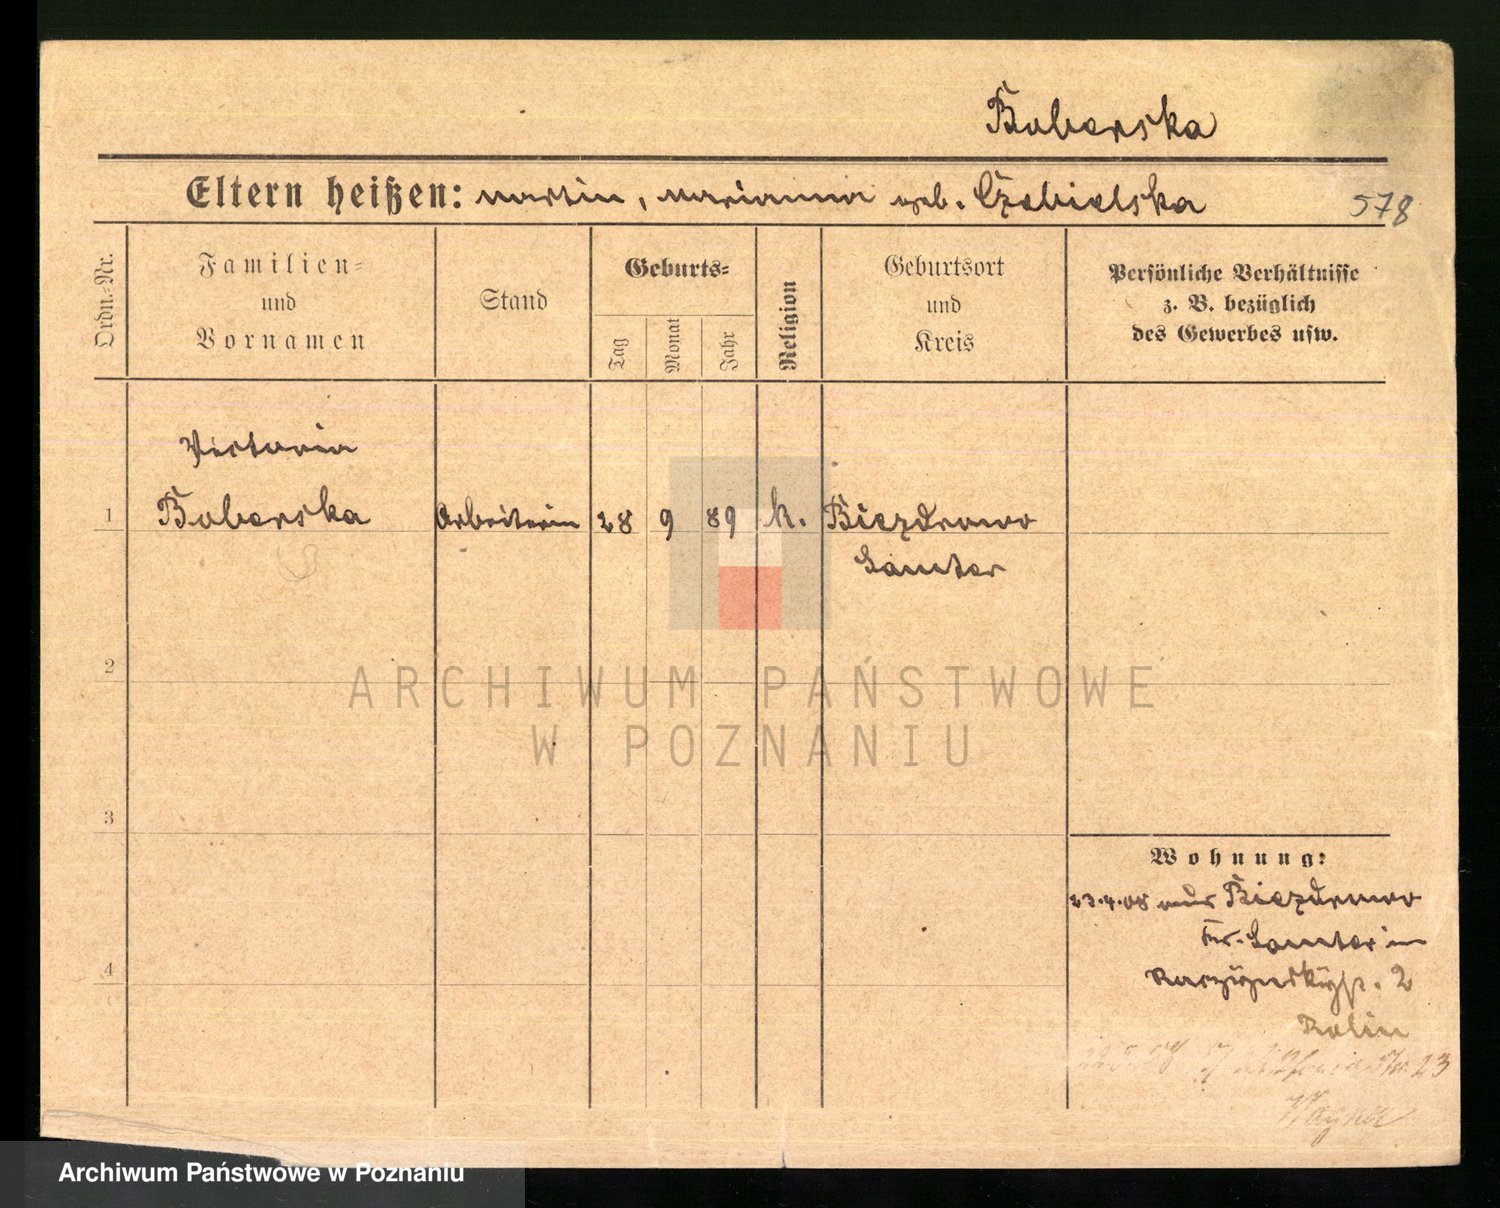 Boberska
Eltern heißen: Martin, Marianna geb. Czebielska
578
Ordn.-Nr.
Familien-
und
Vornamen
Stand
Geburts-
Tag
Monat
Jahr
Religion
Geburtsort
und
Kreis
Persönliche Verhältnisse
z. B. bezüglich
des Gewerbes usw.
Victoria
1 Boberska Arbeiterin 28 9 89 k. Biezdrowo
Samter
2
ARCHIWUM PAŃSTWOWE
W POZNANIU
3
Wohnung:
23.4.08 aus Biezdrowo
Kr. Samter in
2
4
23
Wagner
Archiwum Państwowe w Poznaniu